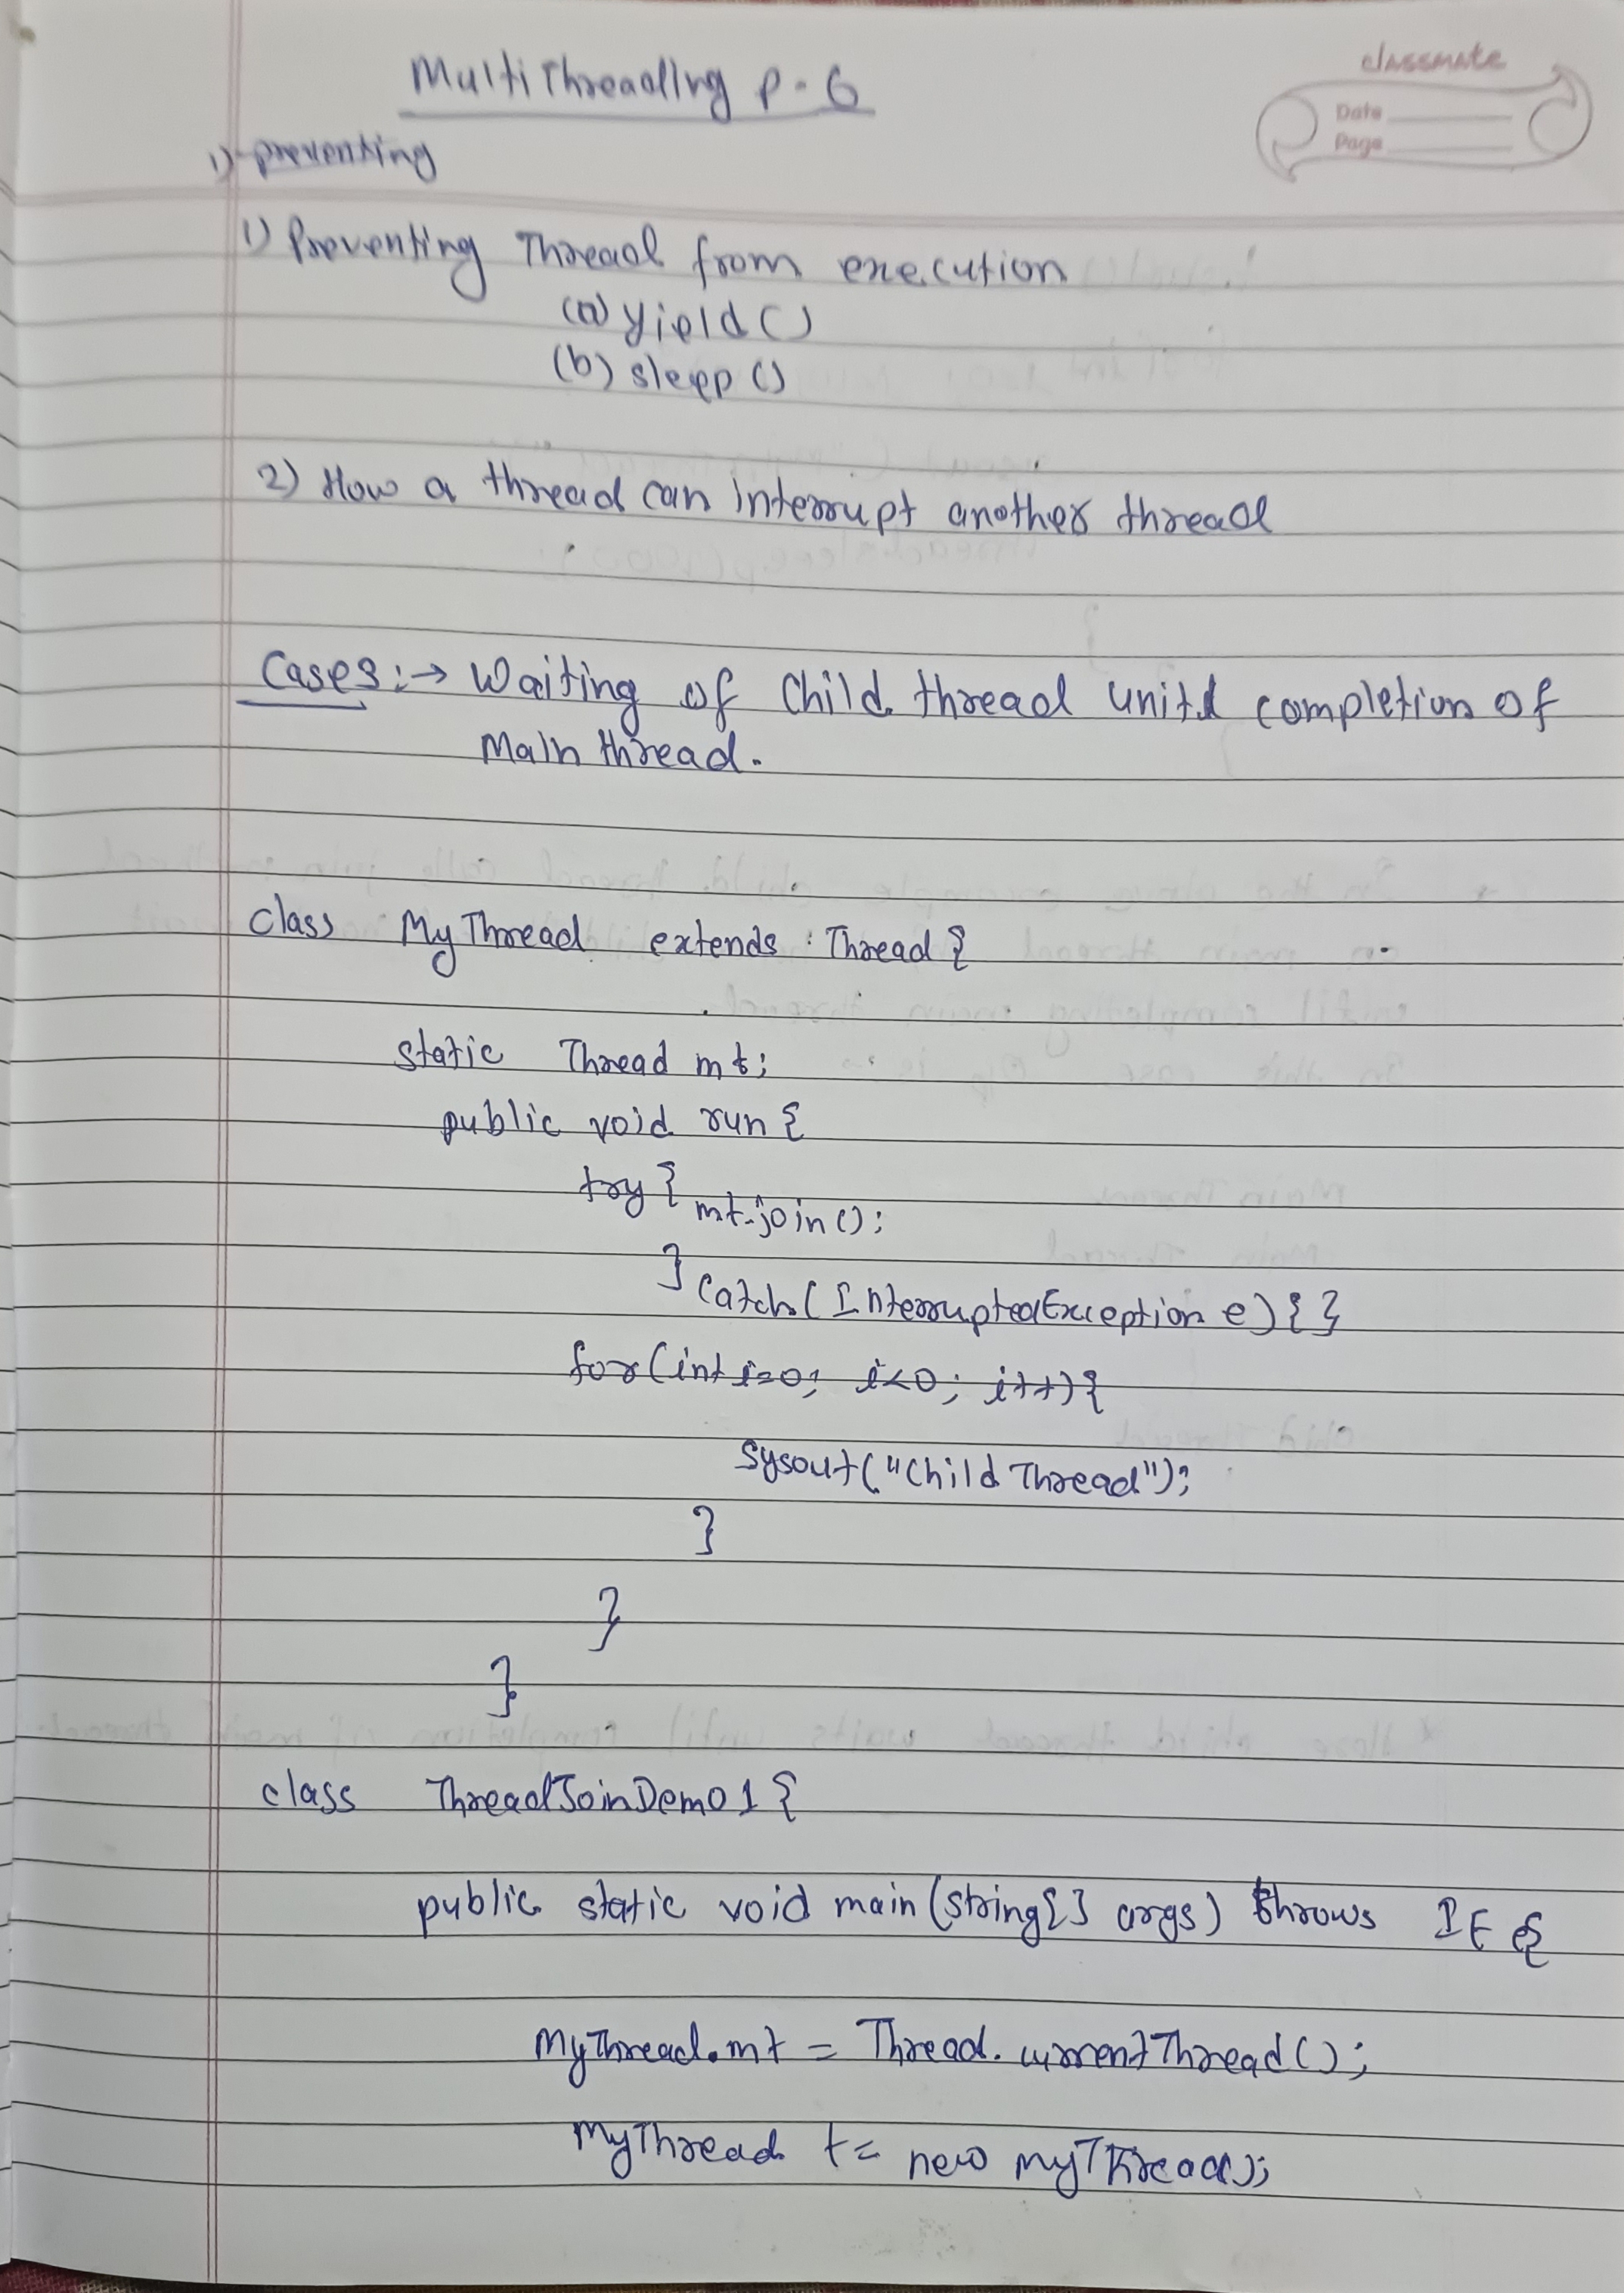 MultiThreading P-6
classmate
Date
Page
1) preventing
1) Preventing Thread from execution
(a) yield()
(b) sleep()
2) How a thread can interrupt another thread
Cases:→ Waiting of Child thread until completion of
Main thread.
class MyThread extends Thread {
static Thread mt;
public void run {
try { mt.join();
} catch (InterruptedException e) { }
for(int i=0; i<0; i++) {
Sysout("Child Thread");
}
}
}
class ThreadJoinDemo1 {
public static void main (String[] args) throws IE {
MyThread.mt = Thread.currentThread();
MyThread t = new MyThread();